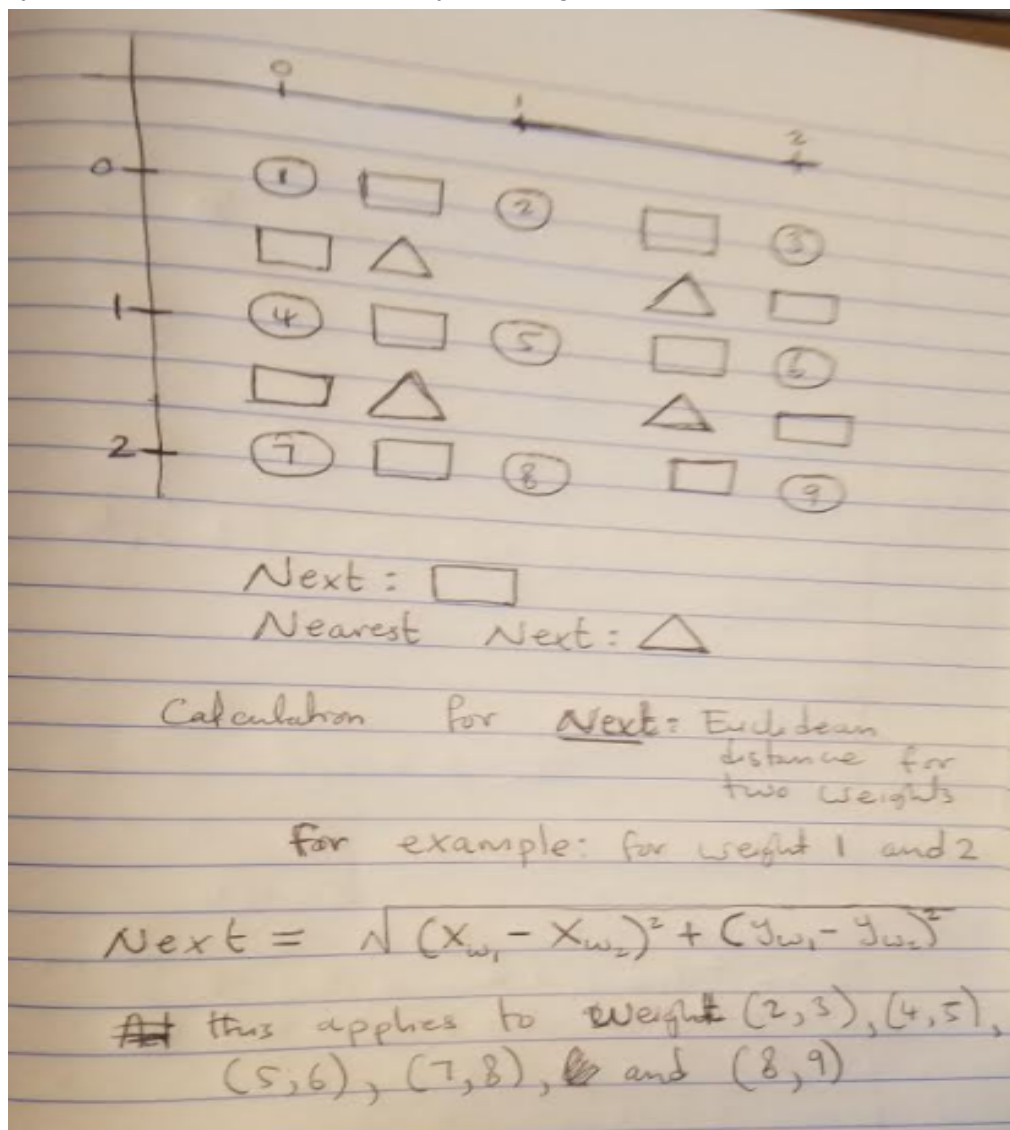 0
1
2
0 1 2 3
1 4 5 6
2 7 8 9
Next :
Nearest Next :
Calculation for Next = Euclidean
distance for
two weights
for example: for weight 1 and 2
Next = √(Xw₁ - Xw₂)² + (yw₁ - yw₂)²
this applies to weight (2,3), (4,5),
(5,6), (7,8), and (8,9)